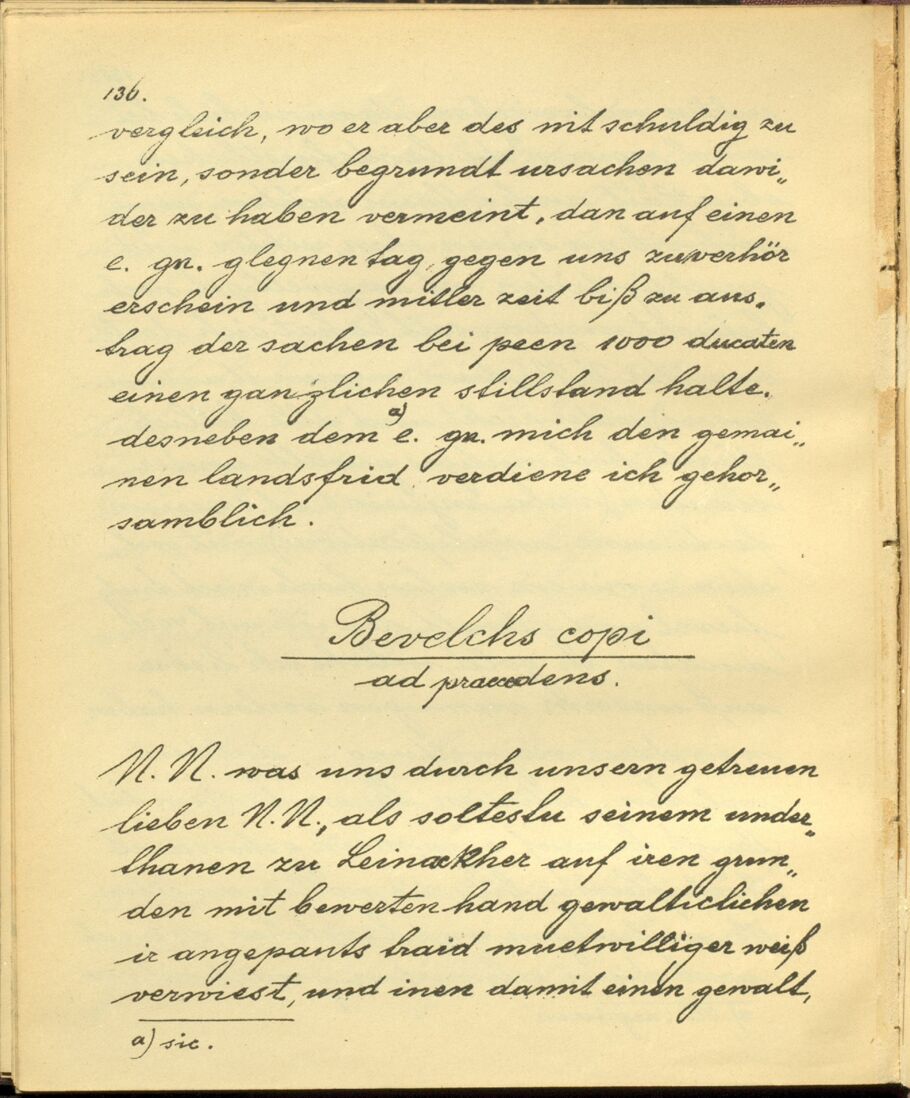 136.
vergleich, wo er aber des nit schuldig zu
sein, sonder begrundt ursachen dawi„
der zu haben vermeint, dan auf einen
e. gn. glegnen tag gegen uns zuverhör
erschein und mitler zeit biß zu aus„
trag der sachen bei peen 1000 ducaten
einen ganzlichen stillstand halte.
desneben dem a) e. gn. mich den gemai„
nen landsfrid verdiene ich gehor„
samblich.
Bevelchs copi
ad praecedens.
N. N. was uns durch unsern getreuen
lieben N. N., als soltestu seinem under„
thanen zu Leinackher auf iren grun„
den mit bewerten hand gewalticlichen
ir angepauts traid muetwilliger weiß
verwiest, und inen damit einen gewalt,
a) sic.